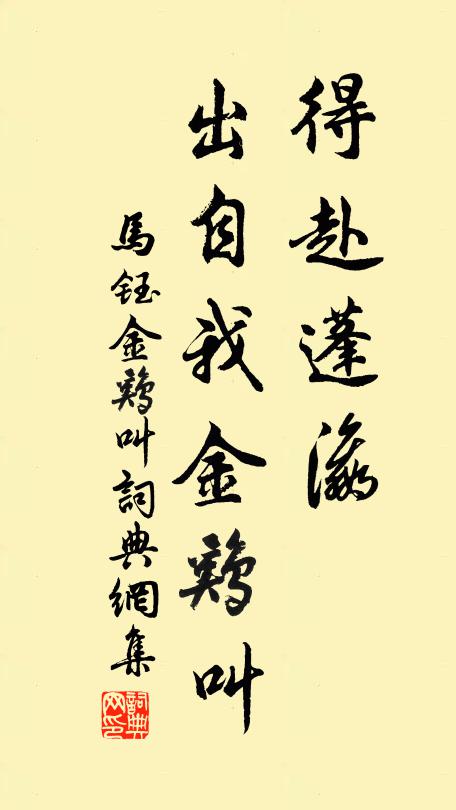 得赴蓬瀛
出自我金鷄叫
馬鈺金鷄叫詞典網集
詞典网印